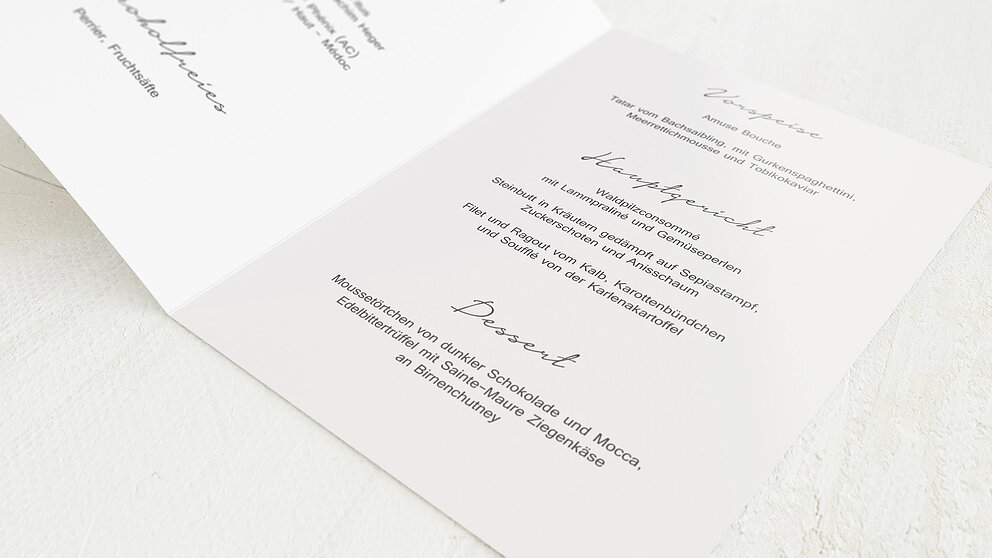 aus
Joachim Heger
Phénix (AC)
Haut - Médoc
Perrier, Fruchtsäfte
Vorspeise
Amuse Bouche
Tatar vom Bachsaibling, mit Gurkenspaghettini,
Meerrettichmousse und Tobikokaviar
Hauptgericht
Waldpilzconsommé
mit Lammpraliné und Gemüseperlen
Steinbutt in Kräutern gedämpft auf Sepiastampf,
Zuckerschoten und Anisschaum
Filet und Ragout vom Kalb, Karottenbündchen
und Soufflé von der Karlenakartoffel
Dessert
Moussetörtchen von dunkler Schokolade und Mocca,
Edelbittertrüffel mit Sainte-Maure Ziegenkäse
an Birnenchutney